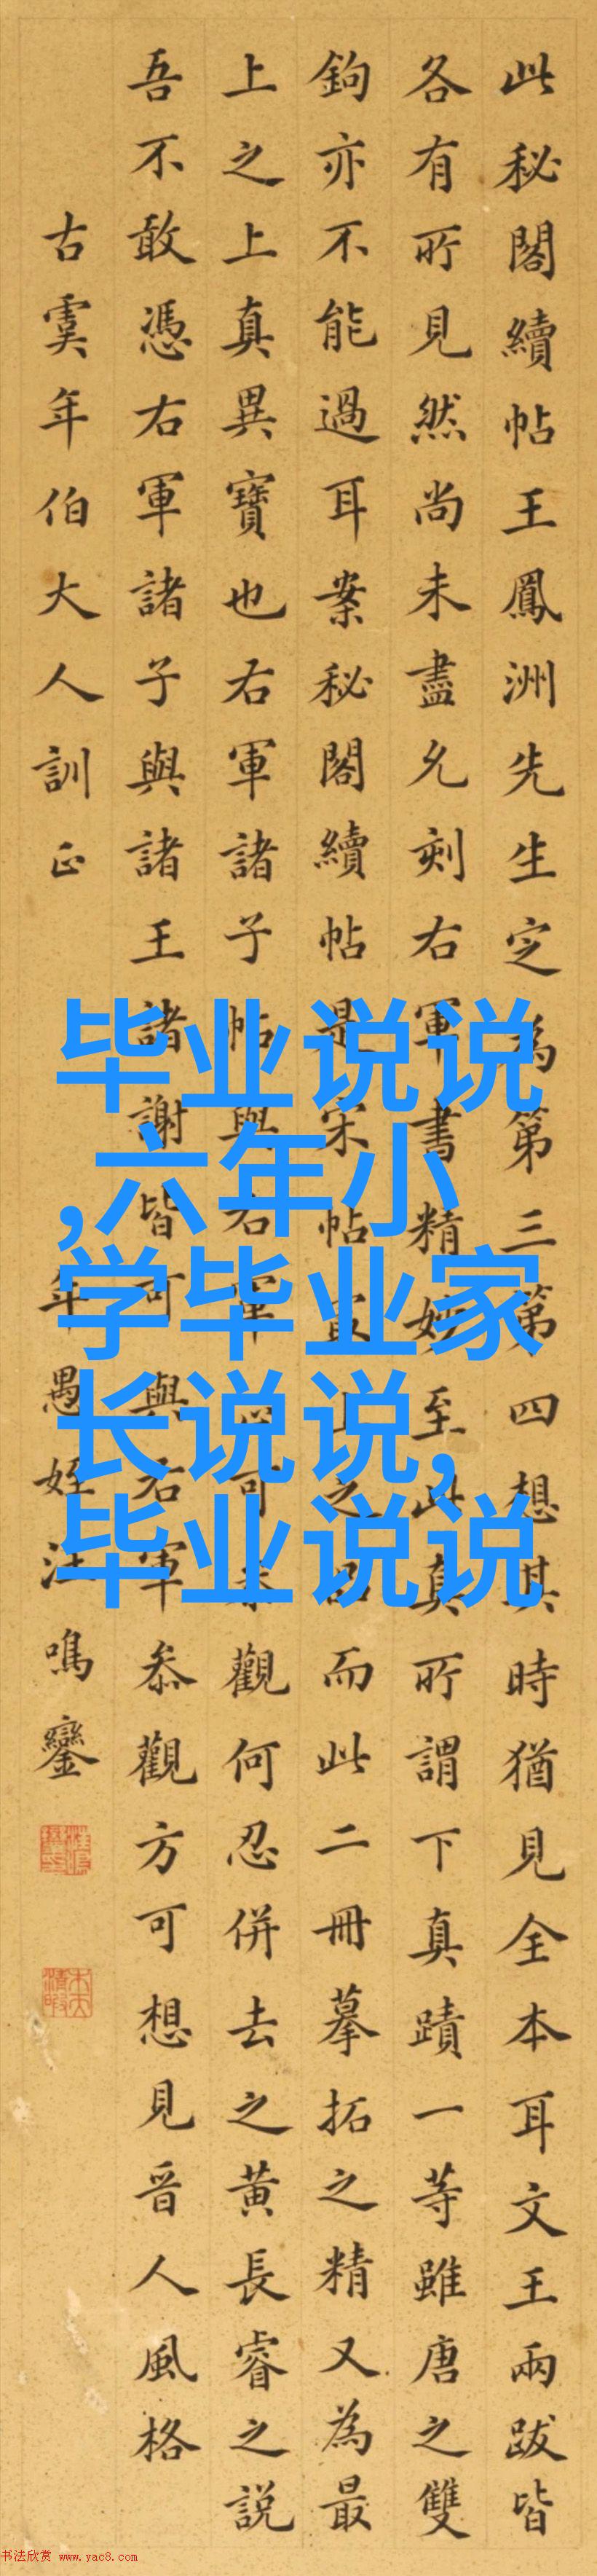 此秘閣續帖王鳳洲先生定為第三第四想其時猶見全本耳文王兩跋皆
各有所見然尚未盡允刻右軍書精妙至此真所謂下真蹟一等雖唐之雙
鉤亦不能過耳案秘閣續帖是宋帖最上之品而此二冊摹拓之精又為最
上之上真異寶也右軍諸子帖與右軍可參觀何忍併去之黃長睿之說
吾不敢憑右軍諸子與諸王諸謝皆可與右軍參觀方可想見晉人風格
古虞年伯大人訓正
年愚姪汪鳴鑾
毕业说说
,六年小
学毕业家
长说说,
毕业说说
书法欣赏 www.yac8.com